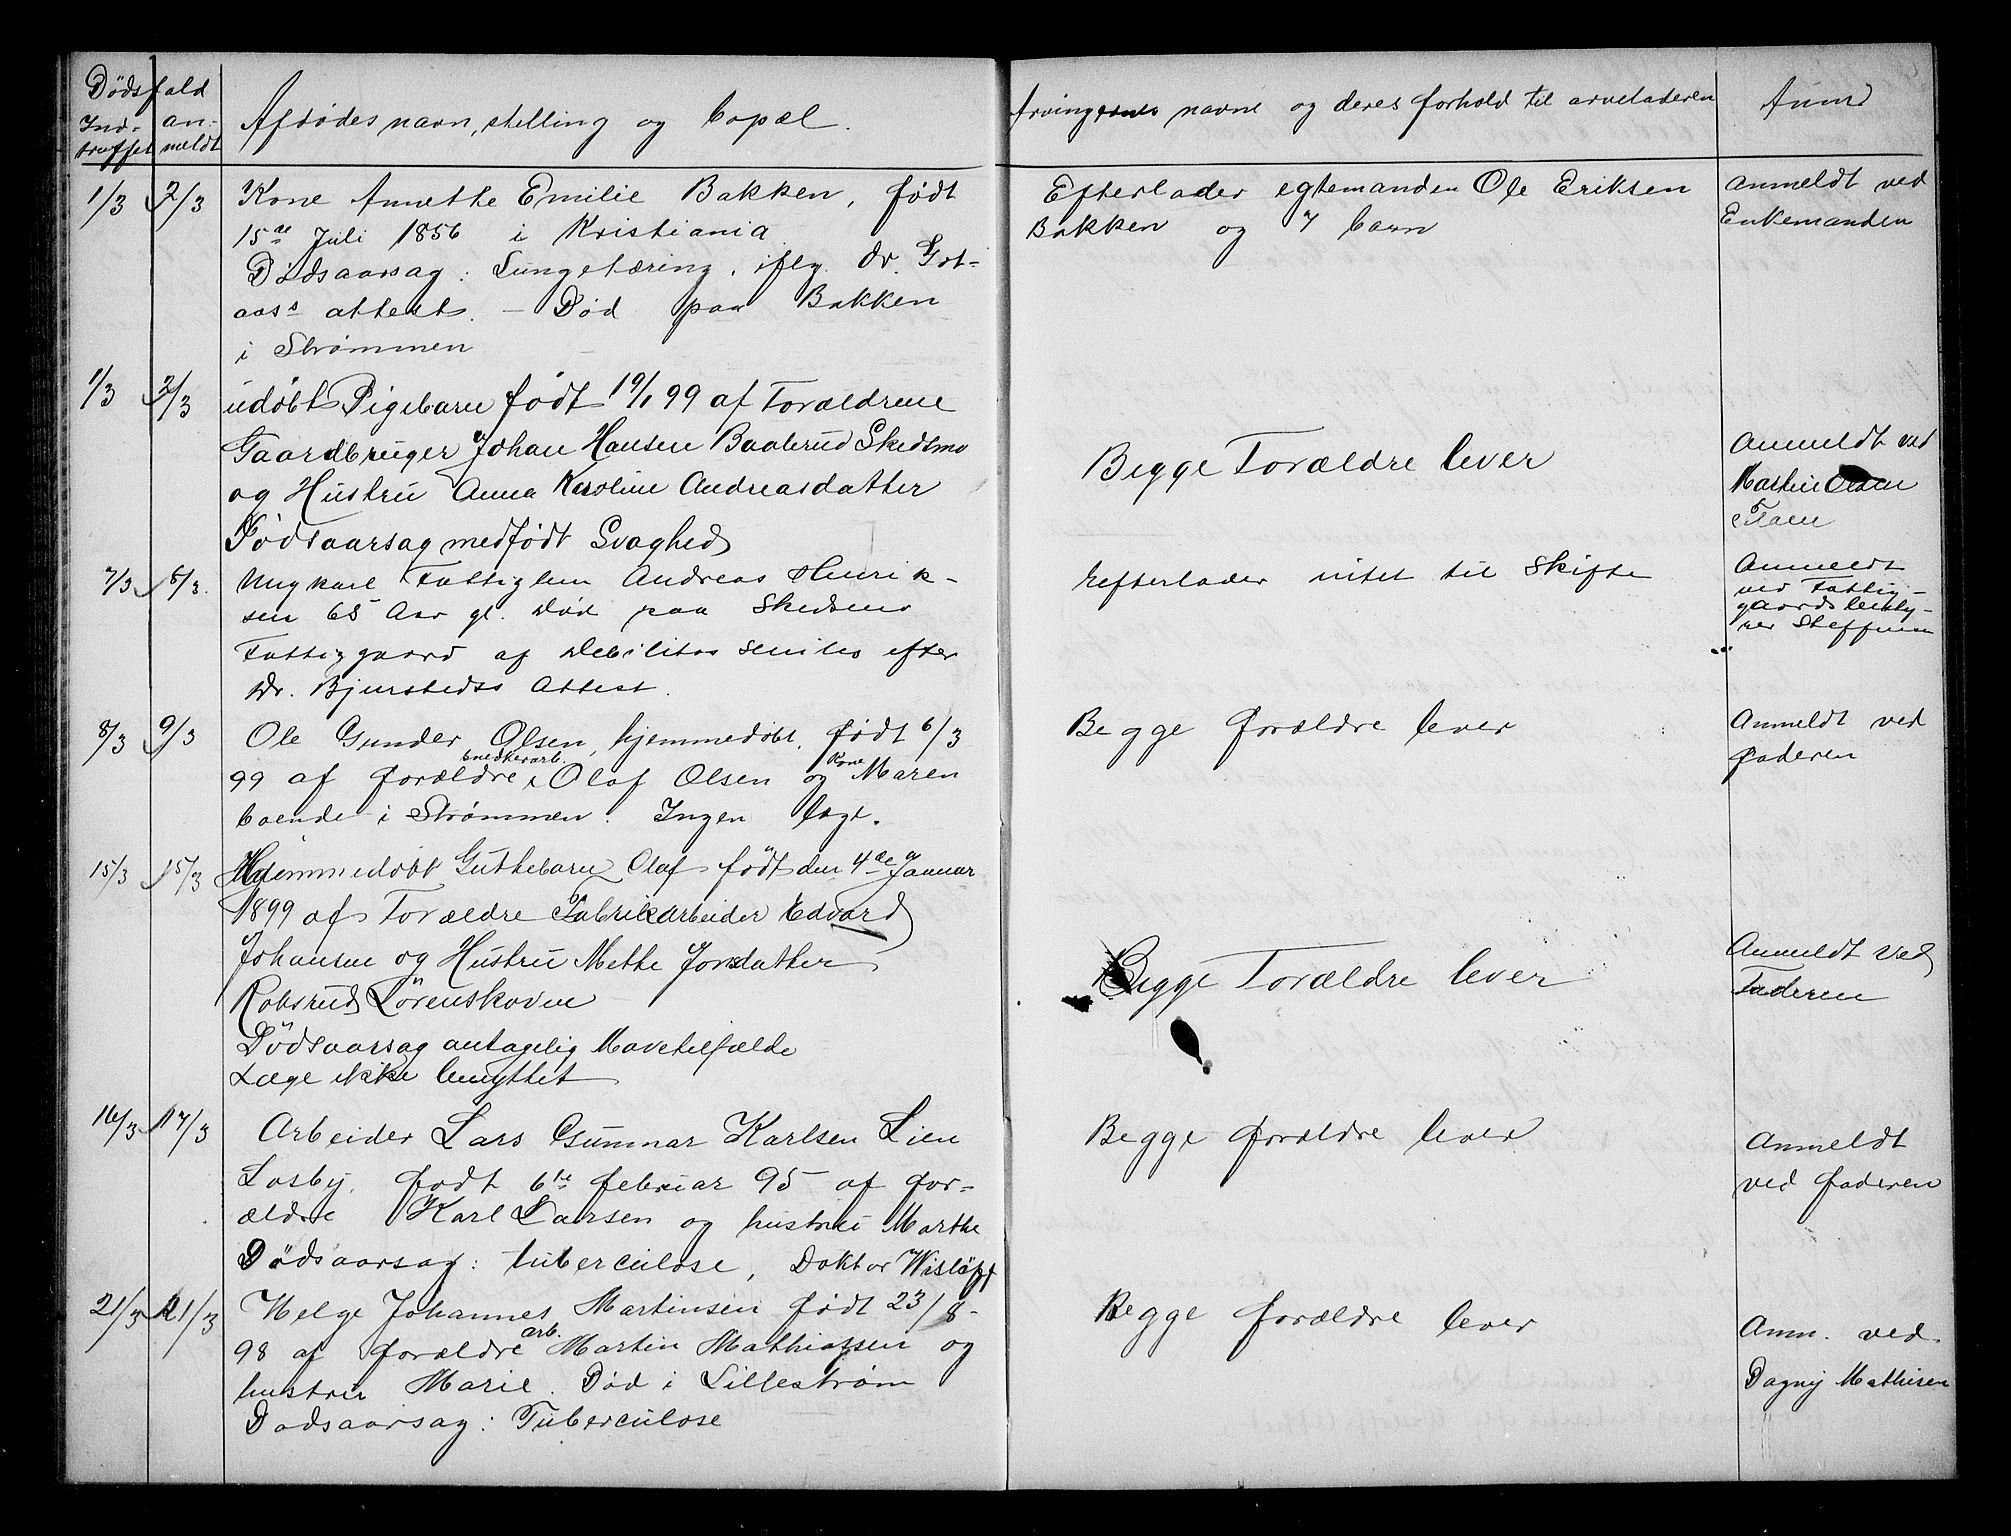 Dødsfald
Ind- an-
truffet meldt
Afdødes navn, stilling og bopæl.
Arvingernes navne og deres forhold til arveladeren
Anm
1/3 2/3 Kone Annethe Emilie Bakken, født
15de Juli 1856 i Kristiania
Dødsaarsag: Lungetæring, iflg. dr. Got-
aass attest. - Død paa Bakken
i Strømmen
Efterlader egtemanden Ole Eriksen
Bakken og 7 barn
Anmeldt ved
Enkemanden
1/3 2/3 udøbt Pigebarn født 19/1 99 af Forældrene
Gaardbruger Johan Hansen Baalerud Skedsmo
og Hustru Anna Karoline Andreasdatter
Dødsaarsag medfødt Svaghed
Begge Forældre lever
Anmeldt ved
Martin Olsen
7/3 8/3. Ungkarl Fattiglem Andreas Henrik-
sen 65 Aar gl. Død paa Skedsmo
Fattiggaard af Debilitas senilis efter
Dr. Bjerstedss Attest.
Efterlader intet til Skifte
Anmeldt
ved Fattig-
gaardsbesty-
rer Steffensen
8/3 9/3 Ole Gunder Olsen, hjemmedøbt, født 6/3
99 af forældre, Snedkerarb. Olaf Olsen og Kone Maren
boende i Strømmen. Ingen læge.
Begge forældre lever
Anmeldt ved
faderen
15/3 15/3 Hjemmedøbt Guttebarn Olaf født den 4de Januar
1899 af Forældre Fabrikarbeider Edvard
Johansen og Hustru Mette Jonsdatter
Robsrud Lørenskoven
Dødsaarsag antagelig Mavetilfælde
Læge ikke benyttet
Begge Forældre lever
Anmeldt ved
Faderen
16/3 17/3 Arbeider Lars Gunnar Karlsen Lien
Losby, født 6te februar 95 af for-
ældre Karl Larsen og hustru Marthe
Dødsaarsag: tuberculose, Doktor Wisløff
Begge forældre lever
Anmeldt
ved faderen
21/3 21/3 Helge Johannes Martinsen født 23/8-
98 af forældre arb. Martin Mathiassen og
hustru Marie. Død i Lillestrøm
Dødsaarsag: Tuberculose
Begge forældre lever
Anm. ved
Dagny Mathisen